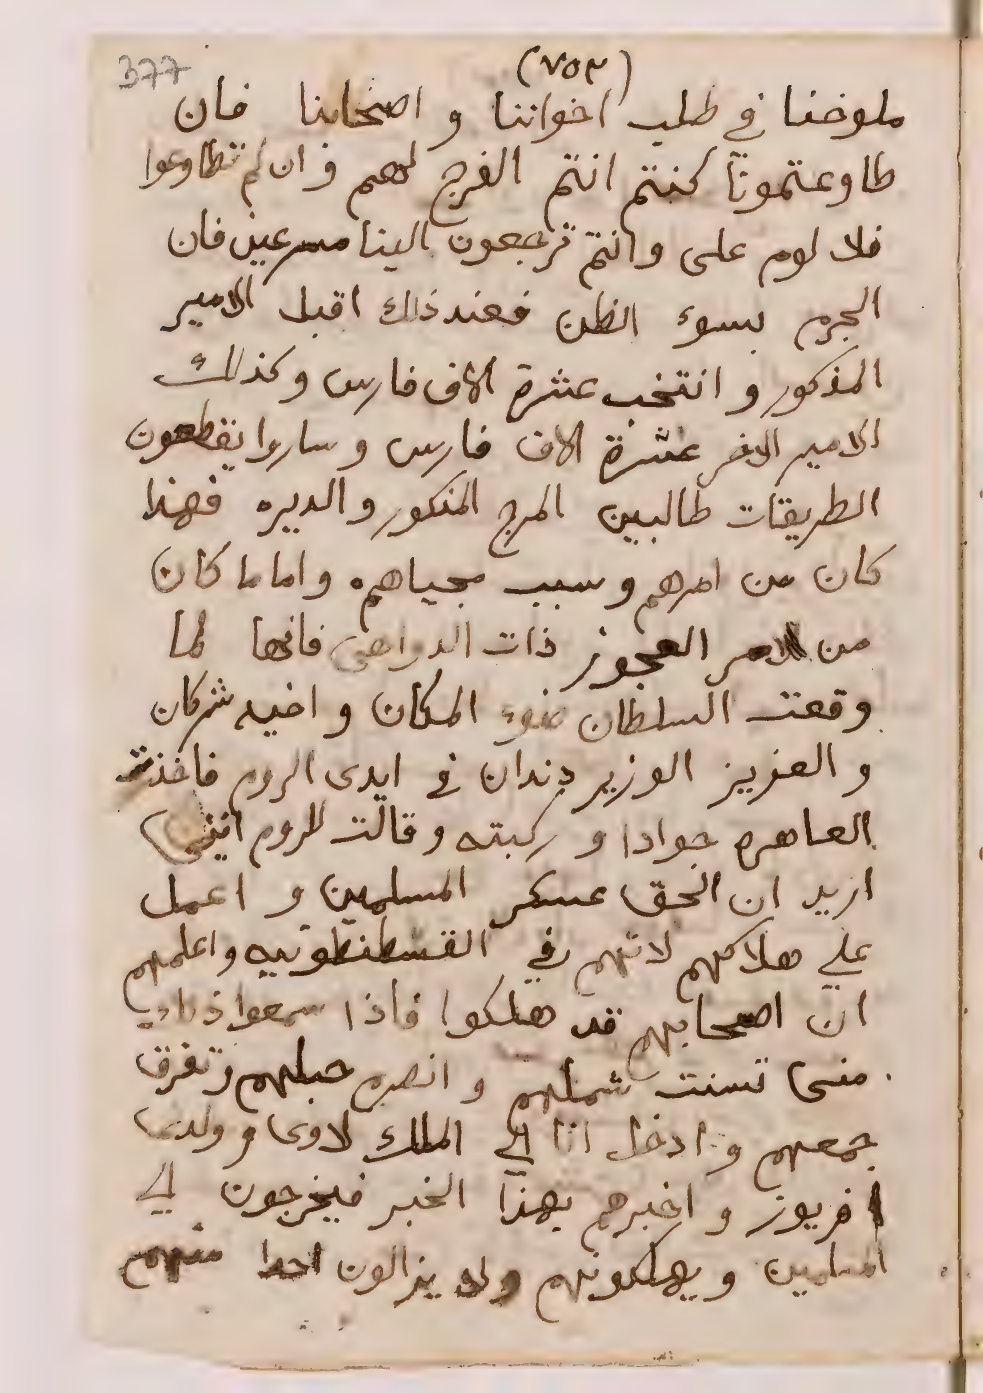 377
(٧٥٣)
ملوخنا في طلب اخواننا و اصحابنا فان
طاوعتمونا كنتم انتم الفرج لهم و ان لم تطاوعوا
فلا لوم على وانتم ترجعون الينا مسرعين فان
الجرم بسوء الظن فعند ذلك اقبل الامير
المذكور و انتخب عشرة الاف فارس و كذلك
الامير الاخر عشرة الاف فارس و ساروا يقطعون
الطريقات طالبين المرج المذكور و الديره فهذا
كان من امرهم و سبب مجياهم واما ما كان
من امر العجوز ذات الدواهي فانها لما
وقعت السلطان ضوء المكان و اخيه شركان
و العزيز الوزير دندان في ايدى الروم فاخذت
العاهره جوادا و ركبته و قالت للروم
اريد ان الحق عسكر المسلمين و اعمل
علي هلاكهم لانهم في القسطنطونيه واعلمهم
ان اصحابهم قد هلكوا فاذا سمعوا ذلك
منى تستت شملهم و انصرم حبلهم وتفرق
جمعهم و ادخل انا الي الملك لاوى و ولدى
افريوز و اخبرهم بهذا الخبر فيخرجون الي
المسلمين و يهلكونهم ولا يزالون احدا منهم